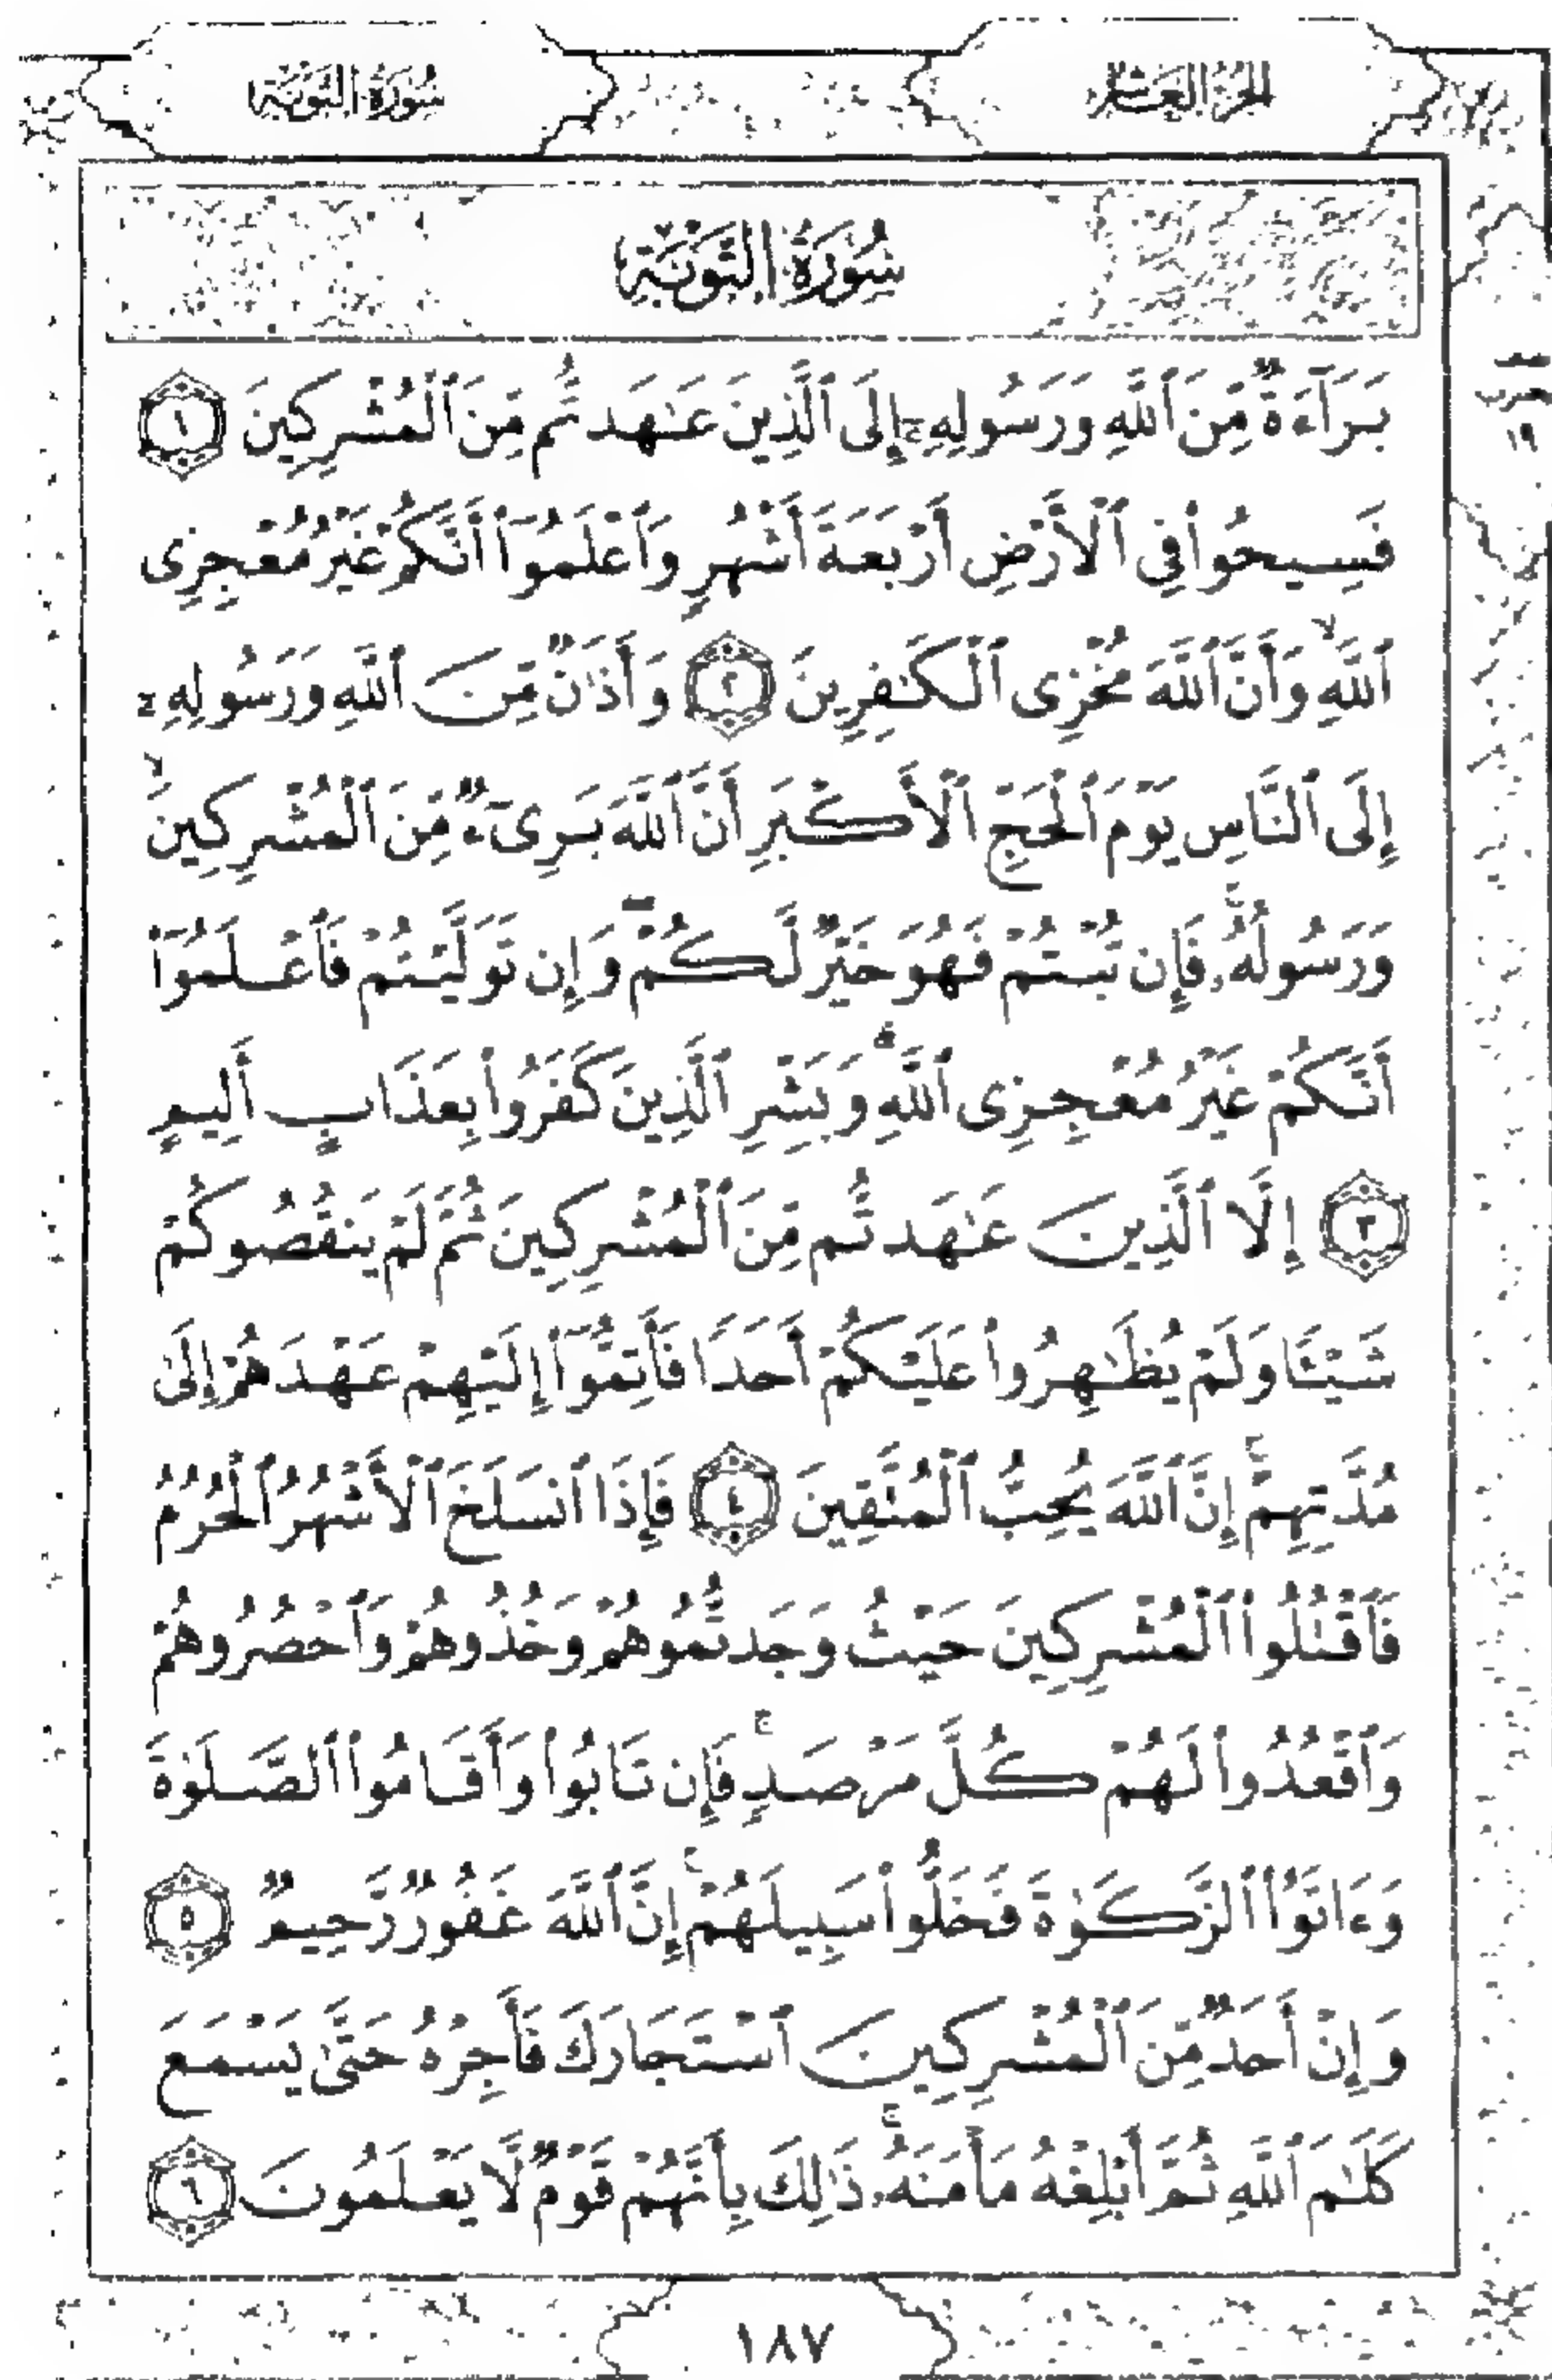 سُورَةُ التَّوْبَةِ
الجُزْءُ العَاشِرُ
سُورَةُ التَّوْبَةِ
بَرَآءَةٌ مِّنَ ٱللَّهِ وَرَسُولِهِۦٓ إِلَى ٱلَّذِينَ عَٰهَدتُّم مِّنَ ٱلْمُشْرِكِينَ ١
فَسِيحُوا۟ فِى ٱلْأَرْضِ أَرْبَعَةَ أَشْهُرٍ وَٱعْلَمُوٓا۟ أَنَّكُمْ غَيْرُ مُعْجِزِى
ٱللَّهِ ۙ وَأَنَّ ٱللَّهَ مُخْزِى ٱلْكَٰفِرِينَ ٢ وَأَذَٰنٌ مِّنَ ٱللَّهِ وَرَسُولِهِۦٓ
إِلَى ٱلنَّاسِ يَوْمَ ٱلْحَجِّ ٱلْأَكْبَرِ أَنَّ ٱللَّهَ بَرِىٓءٌ مِّنَ ٱلْمُشْرِكِينَ ۙ
وَرَسُولُهُۥ ۚ فَإِن تُبْتُمْ فَهُوَ خَيْرٌ لَّكُمْ ۖ وَإِن تَوَلَّيْتُمْ فَٱعْلَمُوٓا۟
أَنَّكُمْ غَيْرُ مُعْجِزِى ٱللَّهِ ۗ وَبَشِّرِ ٱلَّذِينَ كَفَرُوا۟ بِعَذَابٍ أَلِيمٍ
٣ إِلَّا ٱلَّذِينَ عَٰهَدتُّم مِّنَ ٱلْمُشْرِكِينَ ثُمَّ لَمْ يَنقُصُوكُمْ
شَيْـًٔا وَلَمْ يُظَٰهِرُوا۟ عَلَيْكُمْ أَحَدًا فَأَتِمُّوٓا۟ إِلَيْهِمْ عَهْدَهُمْ إِلَىٰ
مُدَّتِهِمْ ۚ إِنَّ ٱللَّهَ يُحِبُّ ٱلْمُتَّقِينَ ٤ فَإِذَا ٱنسَلَخَ ٱلْأَشْهُرُ ٱلْحُرُمُ
فَٱقْتُلُوا۟ ٱلْمُشْرِكِينَ حَيْثُ وَجَدتُّمُوهُمْ وَخُذُوهُمْ وَٱحْصُرُوهُمْ
وَٱقْعُدُوا۟ لَهُمْ كُلَّ مَرْصَدٍ ۚ فَإِن تَابُوا۟ وَأَقَامُوا۟ ٱلصَّلَوٰةَ
وَءَاتَوُا۟ ٱلزَّكَوٰةَ فَخَلُّوا۟ سَبِيلَهُمْ ۚ إِنَّ ٱللَّهَ غَفُورٌ رَّحِيمٌ ٥
وَإِنْ أَحَدٌ مِّنَ ٱلْمُشْرِكِينَ ٱسْتَجَارَكَ فَأَجِرْهُ حَتَّىٰ يَسْمَعَ
كَلَٰمَ ٱللَّهِ ثُمَّ أَبْلِغْهُ مَأْمَنَهُۥ ۚ ذَٰلِكَ بِأَنَّهُمْ قَوْمٌ لَّا يَعْلَمُونَ ٦
حزب
١٩
١٨٧